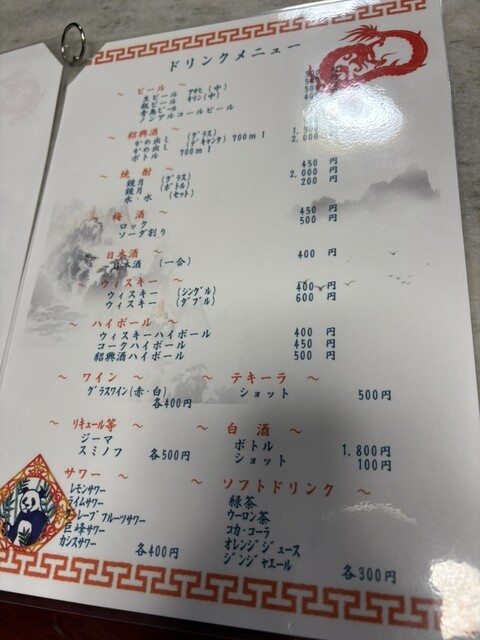 ドリンクメニュー
～ ビール ～
生ビール アサヒ(中)
瓶ビール キリン(中)
青島ビール
ノンアルコールビール
～ 紹興酒 ～
かめ出し (グラス)
かめ出し (デキャンタ) 700ml
ボトル 700ml 2,000 円
～ 焼酎 ～
鏡月 (グラス) 450 円
鏡月 (ボトル) 2,000 円
氷・水 (セット) 200 円
～ 梅酒 ～
ロック 450 円
ソーダ割り 500 円
～ 日本酒 ～
日本酒 (一合) 400 円
～ ウィスキー ～
ウィスキー (シングル) 400 円
ウィスキー (ダブル) 600 円
～ ハイボール ～
ウィスキーハイボール 400 円
コークハイボール 450 円
紹興酒ハイボール 500 円
～ ワイン ～
グラスワイン(赤・白)
各400円
～ テキーラ ～
ショット 500円
～ リキュール等 ～
ジーマ
スミノフ 各500円
～ 白酒 ～
ボトル 1,800円
ショット 100円
サワー ～
レモンサワー
ライムサワー
グレープフルーツサワー
巨峰サワー
カシスサワー 各400円
～ ソフトドリンク ～
緑茶
ウーロン茶
コカ・コーラ
オレンジジュース
ジンジャエール 各300円